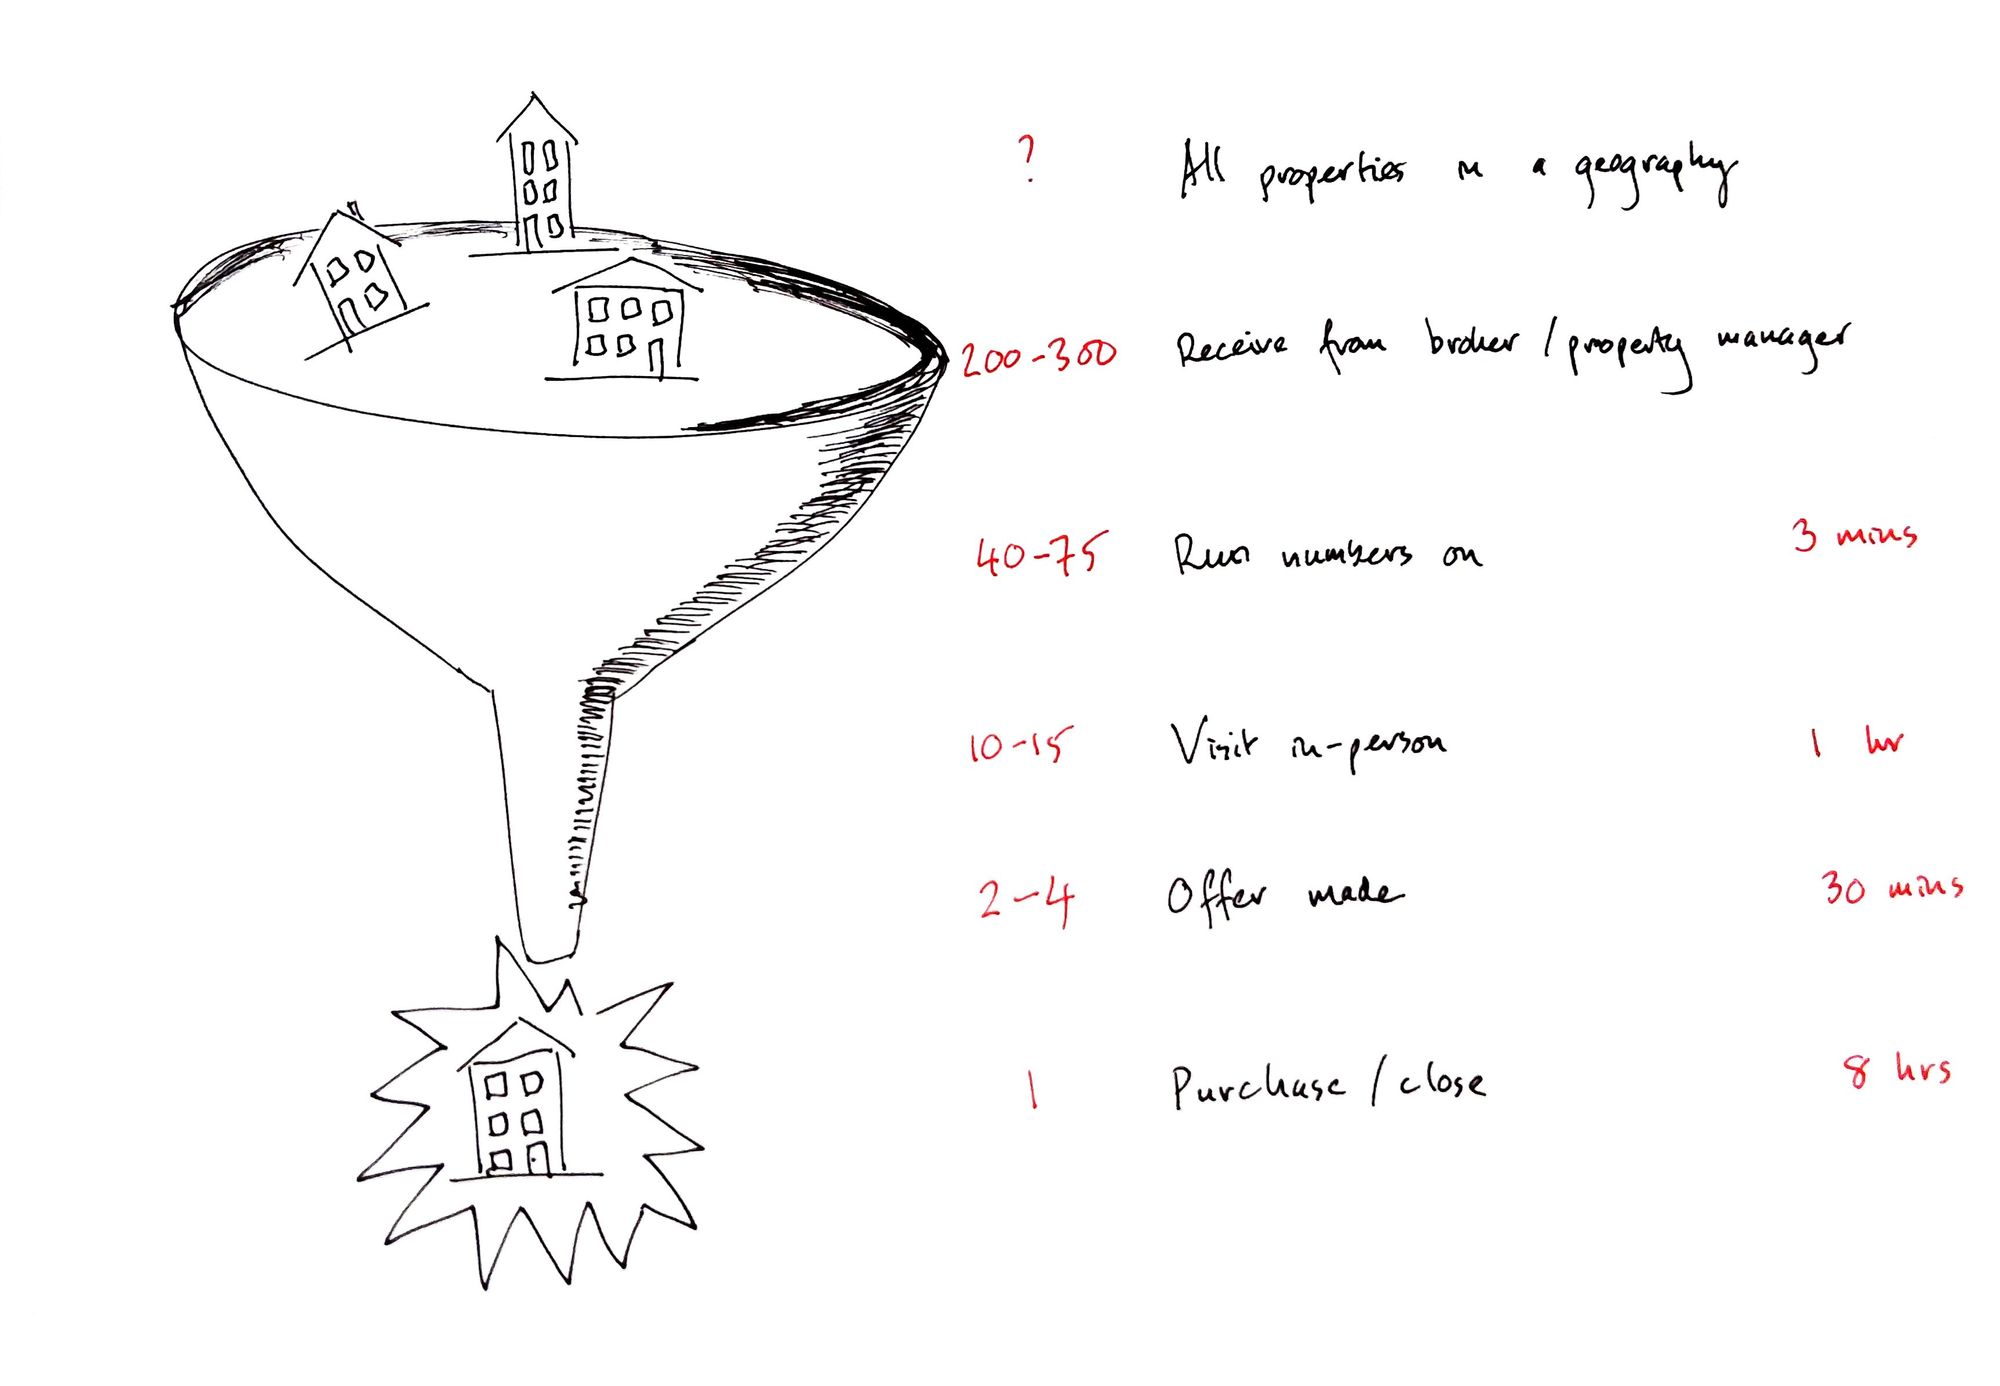 ? All properties in a geography
200-300 Receive from broker / property manager
40-75 Run numbers on 3 mins
10-15 Visit in-person 1 hr
2-4 Offer made 30 mins
1 Purchase / close 8 hrs